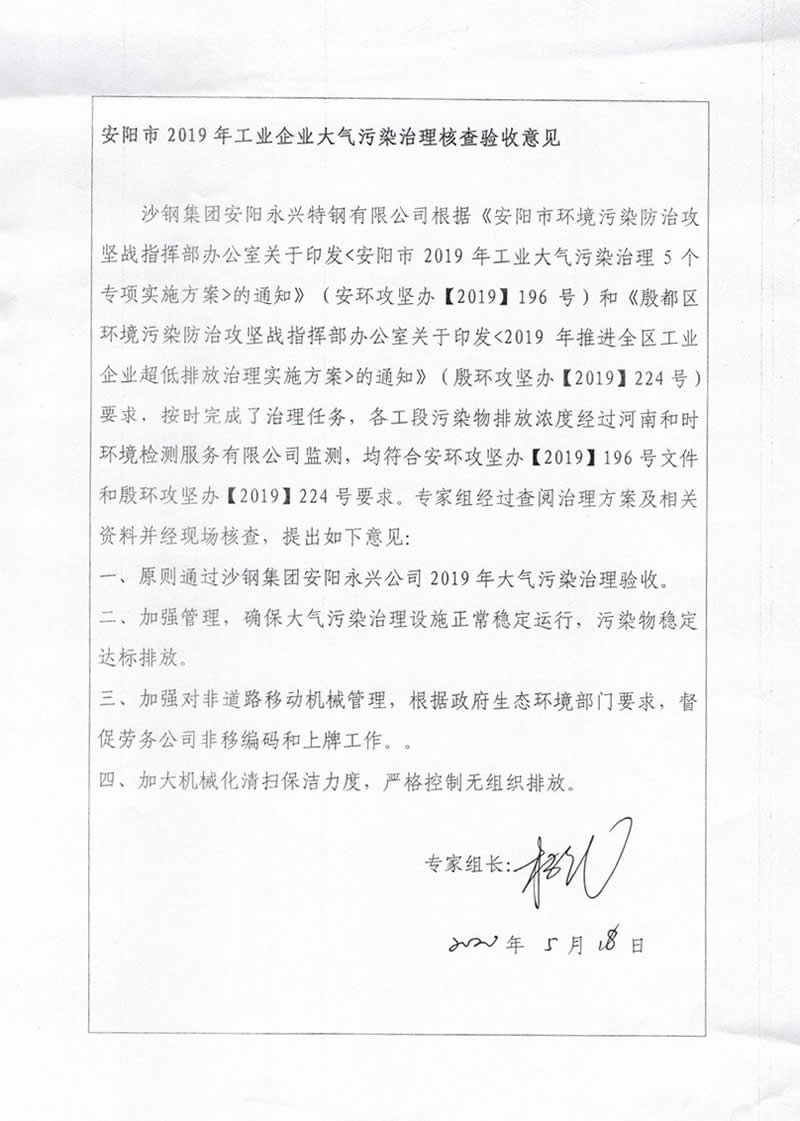 安阳市 2019 年工业企业大气污染治理核查验收意见
沙钢集团安阳永兴特钢有限公司根据《安阳市环境污染防治攻
坚战指挥部办公室关于印发<安阳市 2019 年工业大气污染治理 5 个
专项实施方案>的通知》（安环攻坚办【2019】196 号）和《殷都区
环境污染防治攻坚战指挥部办公室关于印发<2019 年推进全区工业
企业超低排放治理实施方案>的通知》（殷环攻坚办【2019】224 号）
要求，按时完成了治理任务，各工段污染物排放浓度经过河南和时
环境检测服务有限公司监测，均符合安环攻坚办【2019】196 号文件
和殷环攻坚办【2019】224 号要求。专家组经过查阅治理方案及相关
资料并经现场核查，提出如下意见：
一、原则通过沙钢集团安阳永兴公司 2019 年大气污染治理验收。
二、加强管理，确保大气污染治理设施正常稳定运行，污染物稳定
达标排放。
三、加强对非道路移动机械管理，根据政府生态环境部门要求，督
促劳务公司非移编码和上牌工作。。
四、加大机械化清扫保洁力度，严格控制无组织排放。
专家组长：
2020 年 5 月 18 日